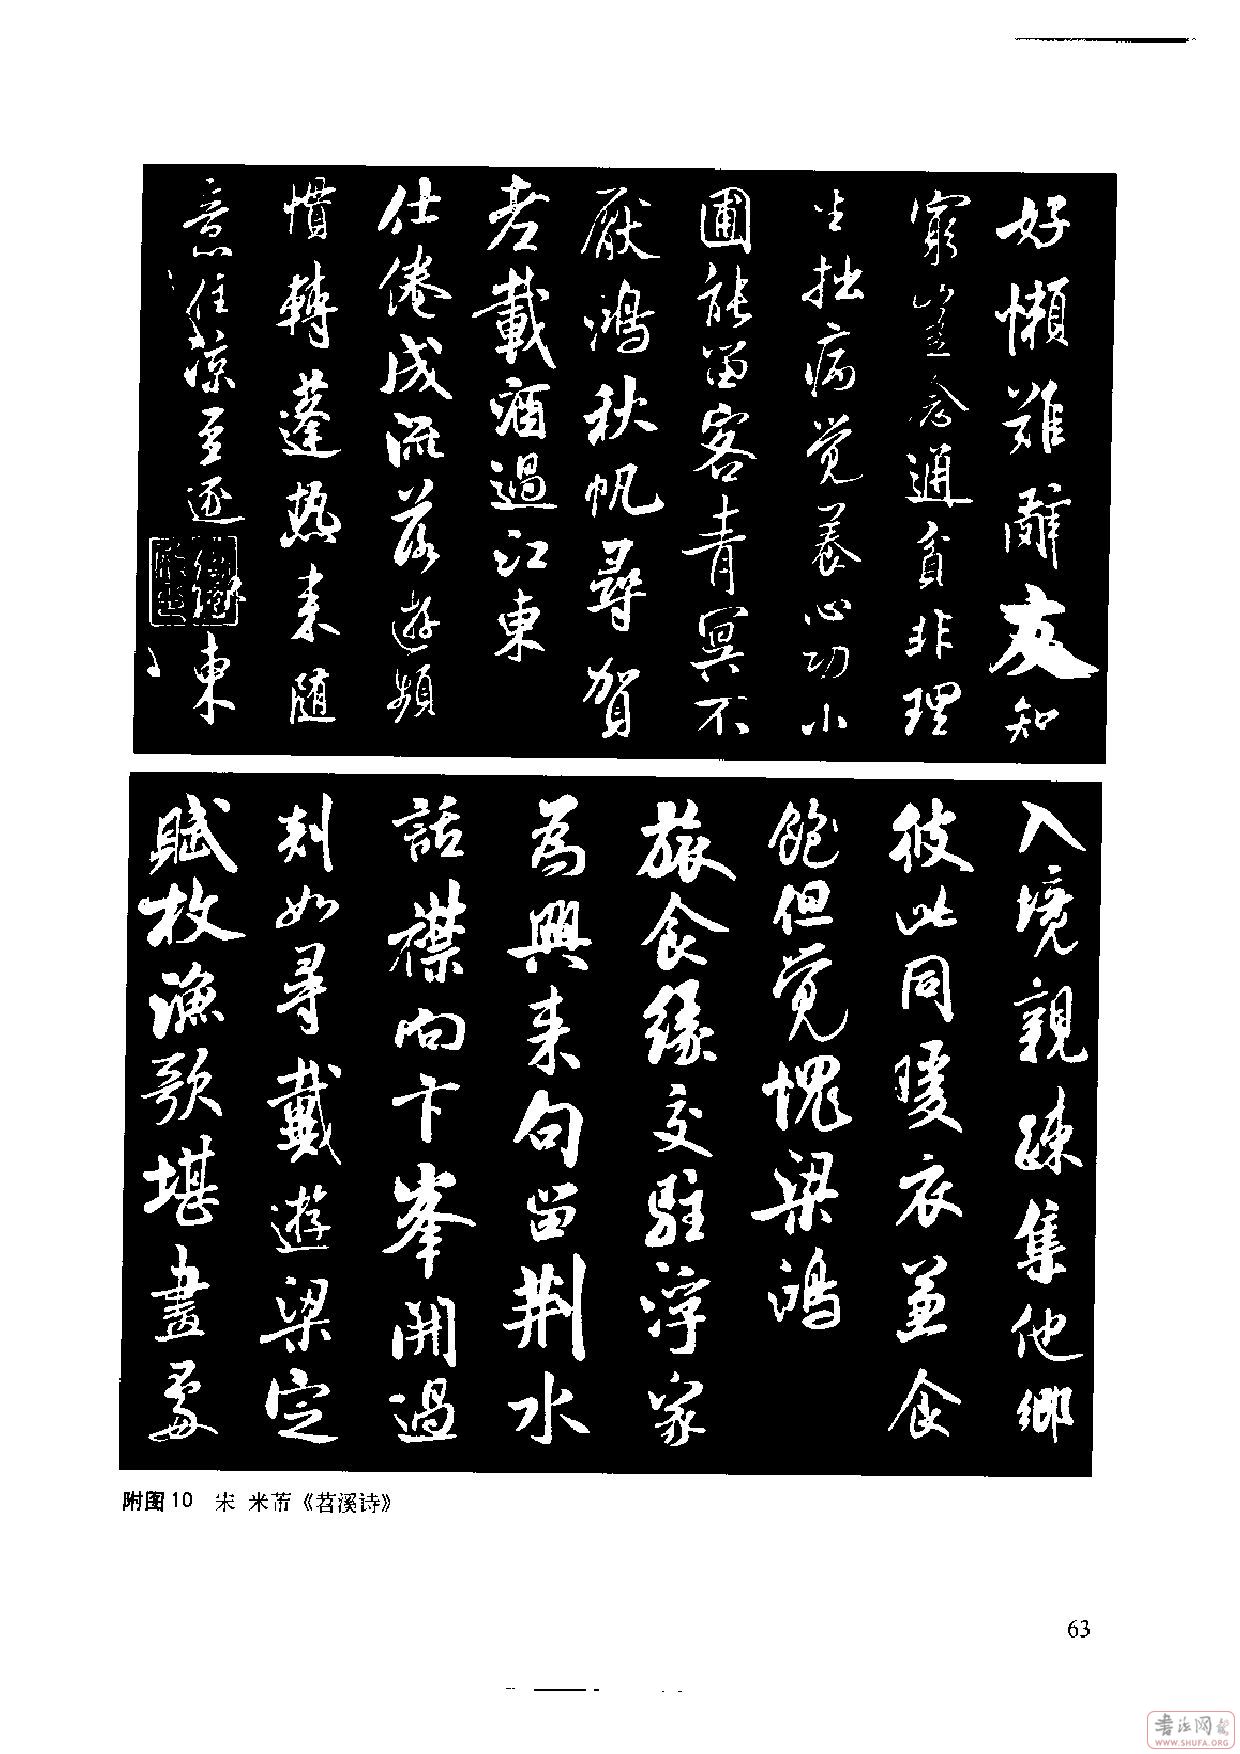 好懶難辭友知
窮豈念通貧非理
生拙病覺養心功小
圃能留客青冥不
厭鴻秋帆尋賀
老載酒過江東
仕倦成流落遊頻
慣轉蓬熱来随
意住涼至逐緣東
入境親疎集他鄉
彼此同暖衣兼食
飽但覺愧梁鴻
旅食緣交駐浮家
為興来句留荆水
話襟向卞峯開過
剡如尋戴遊梁定
賦枚漁歌堪畫處
附图10 宋 米芾《苕溪诗》
63
書法网
WWW.SHUFA.ORG